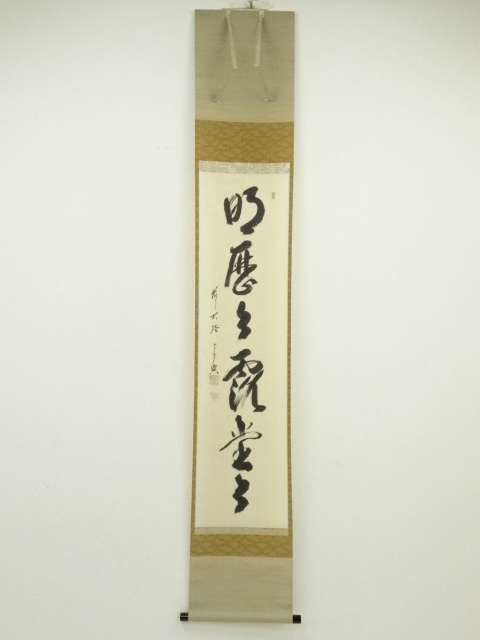 明歴々露堂々
前大徳